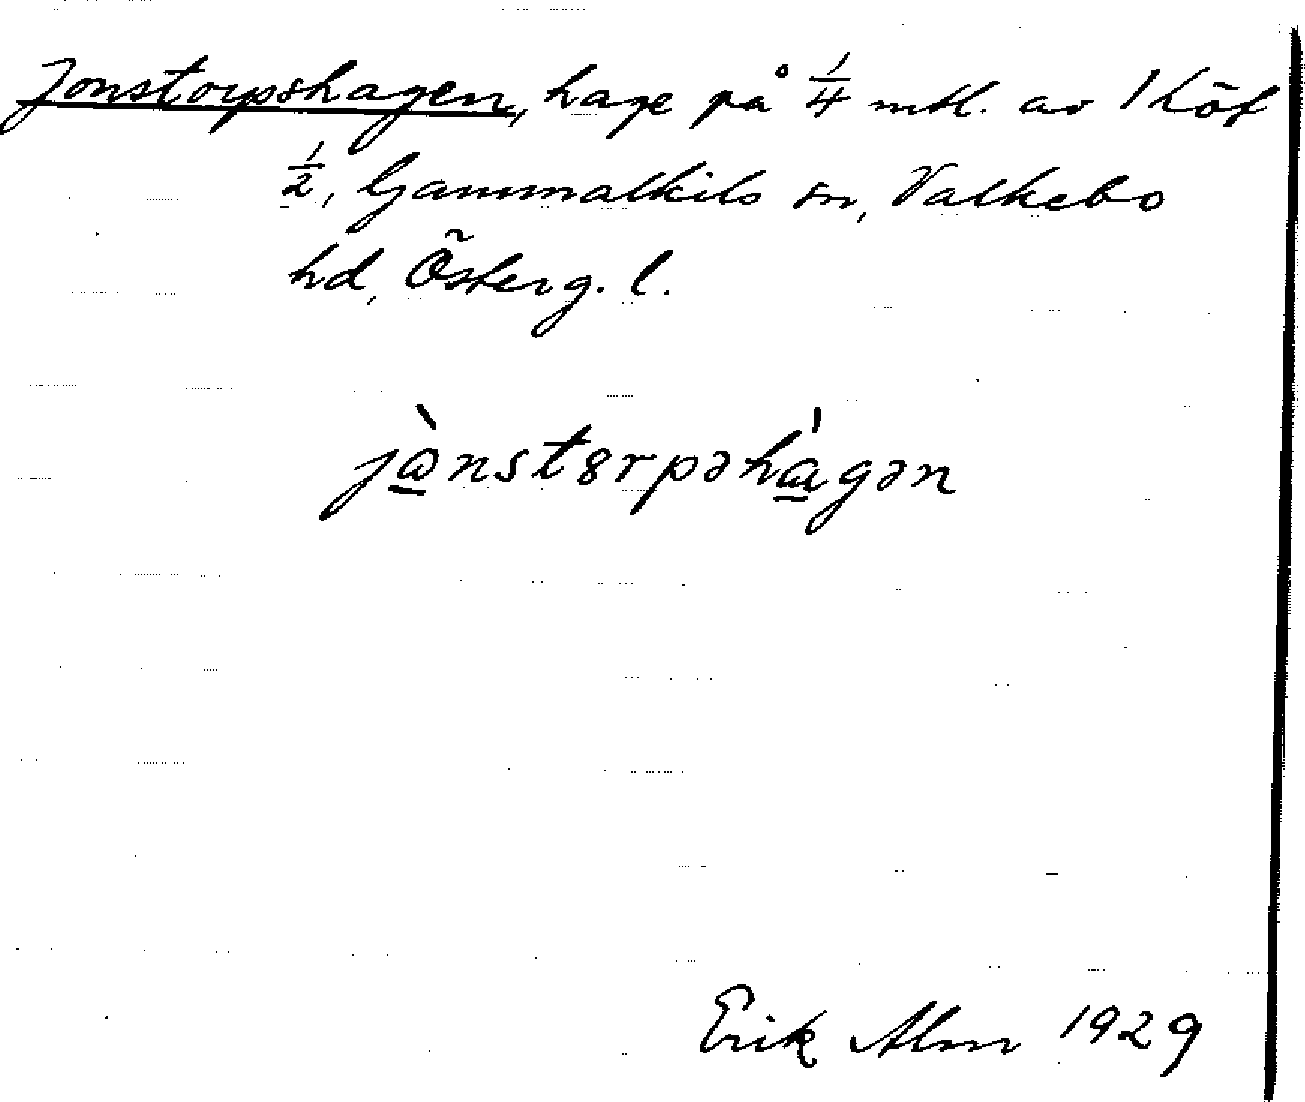 Jonstorpshagen, hage på 1/4 mtl. av Khöf
1/2, Gammalkils sn, Valkebo
hd, Österg. l.
jànstɵrpəhàgən
Erik Alm 1929